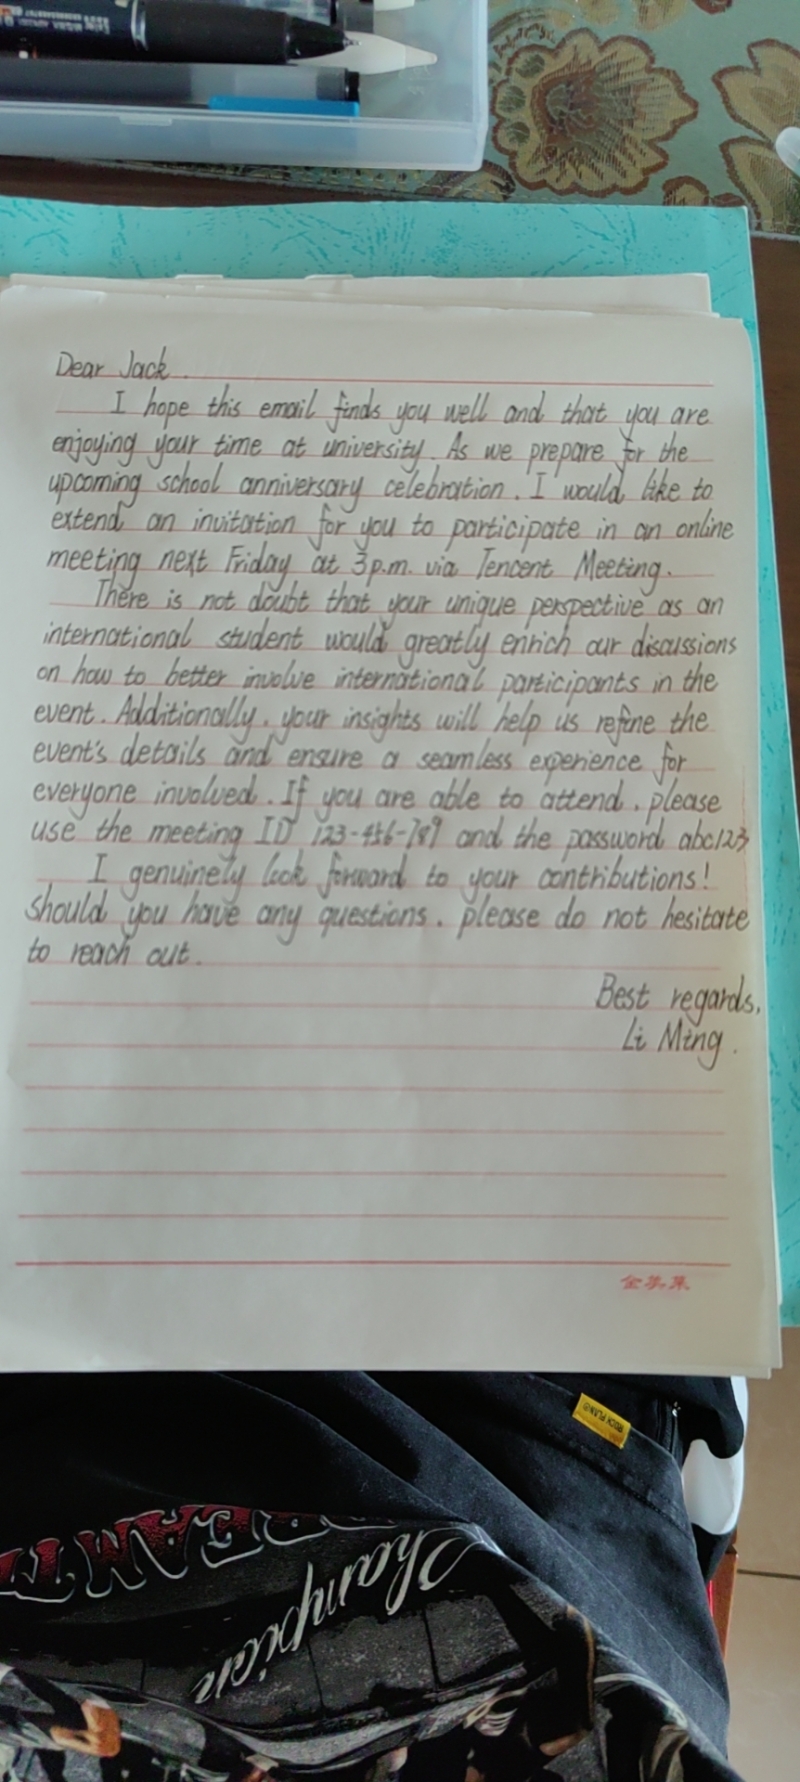 Dear Jack.
I hope this email finds you well and that you are
enjoying your time at university. As we prepare for the
upcoming school anniversary celebration. I would like to
extend an invitation for you to participate in an online
meeting next Friday at 3p.m. via Tencent Meeting.
There is not doubt that your unique perspective as an
international student would greatly enrich our discussions
on how to better involve international participants in the
event. Additionally, your insights will help us refine the
event's details and ensure a seamless experience for
everyone involved. If you are able to attend, please
use the meeting ID 123-456-789 and the password abc123
I genuinely look forward to your contributions!
should you have any questions. please do not hesitate
to reach out.
Best regards,
Li Ming.
ROCK FLAN®
DREAM T
Champion